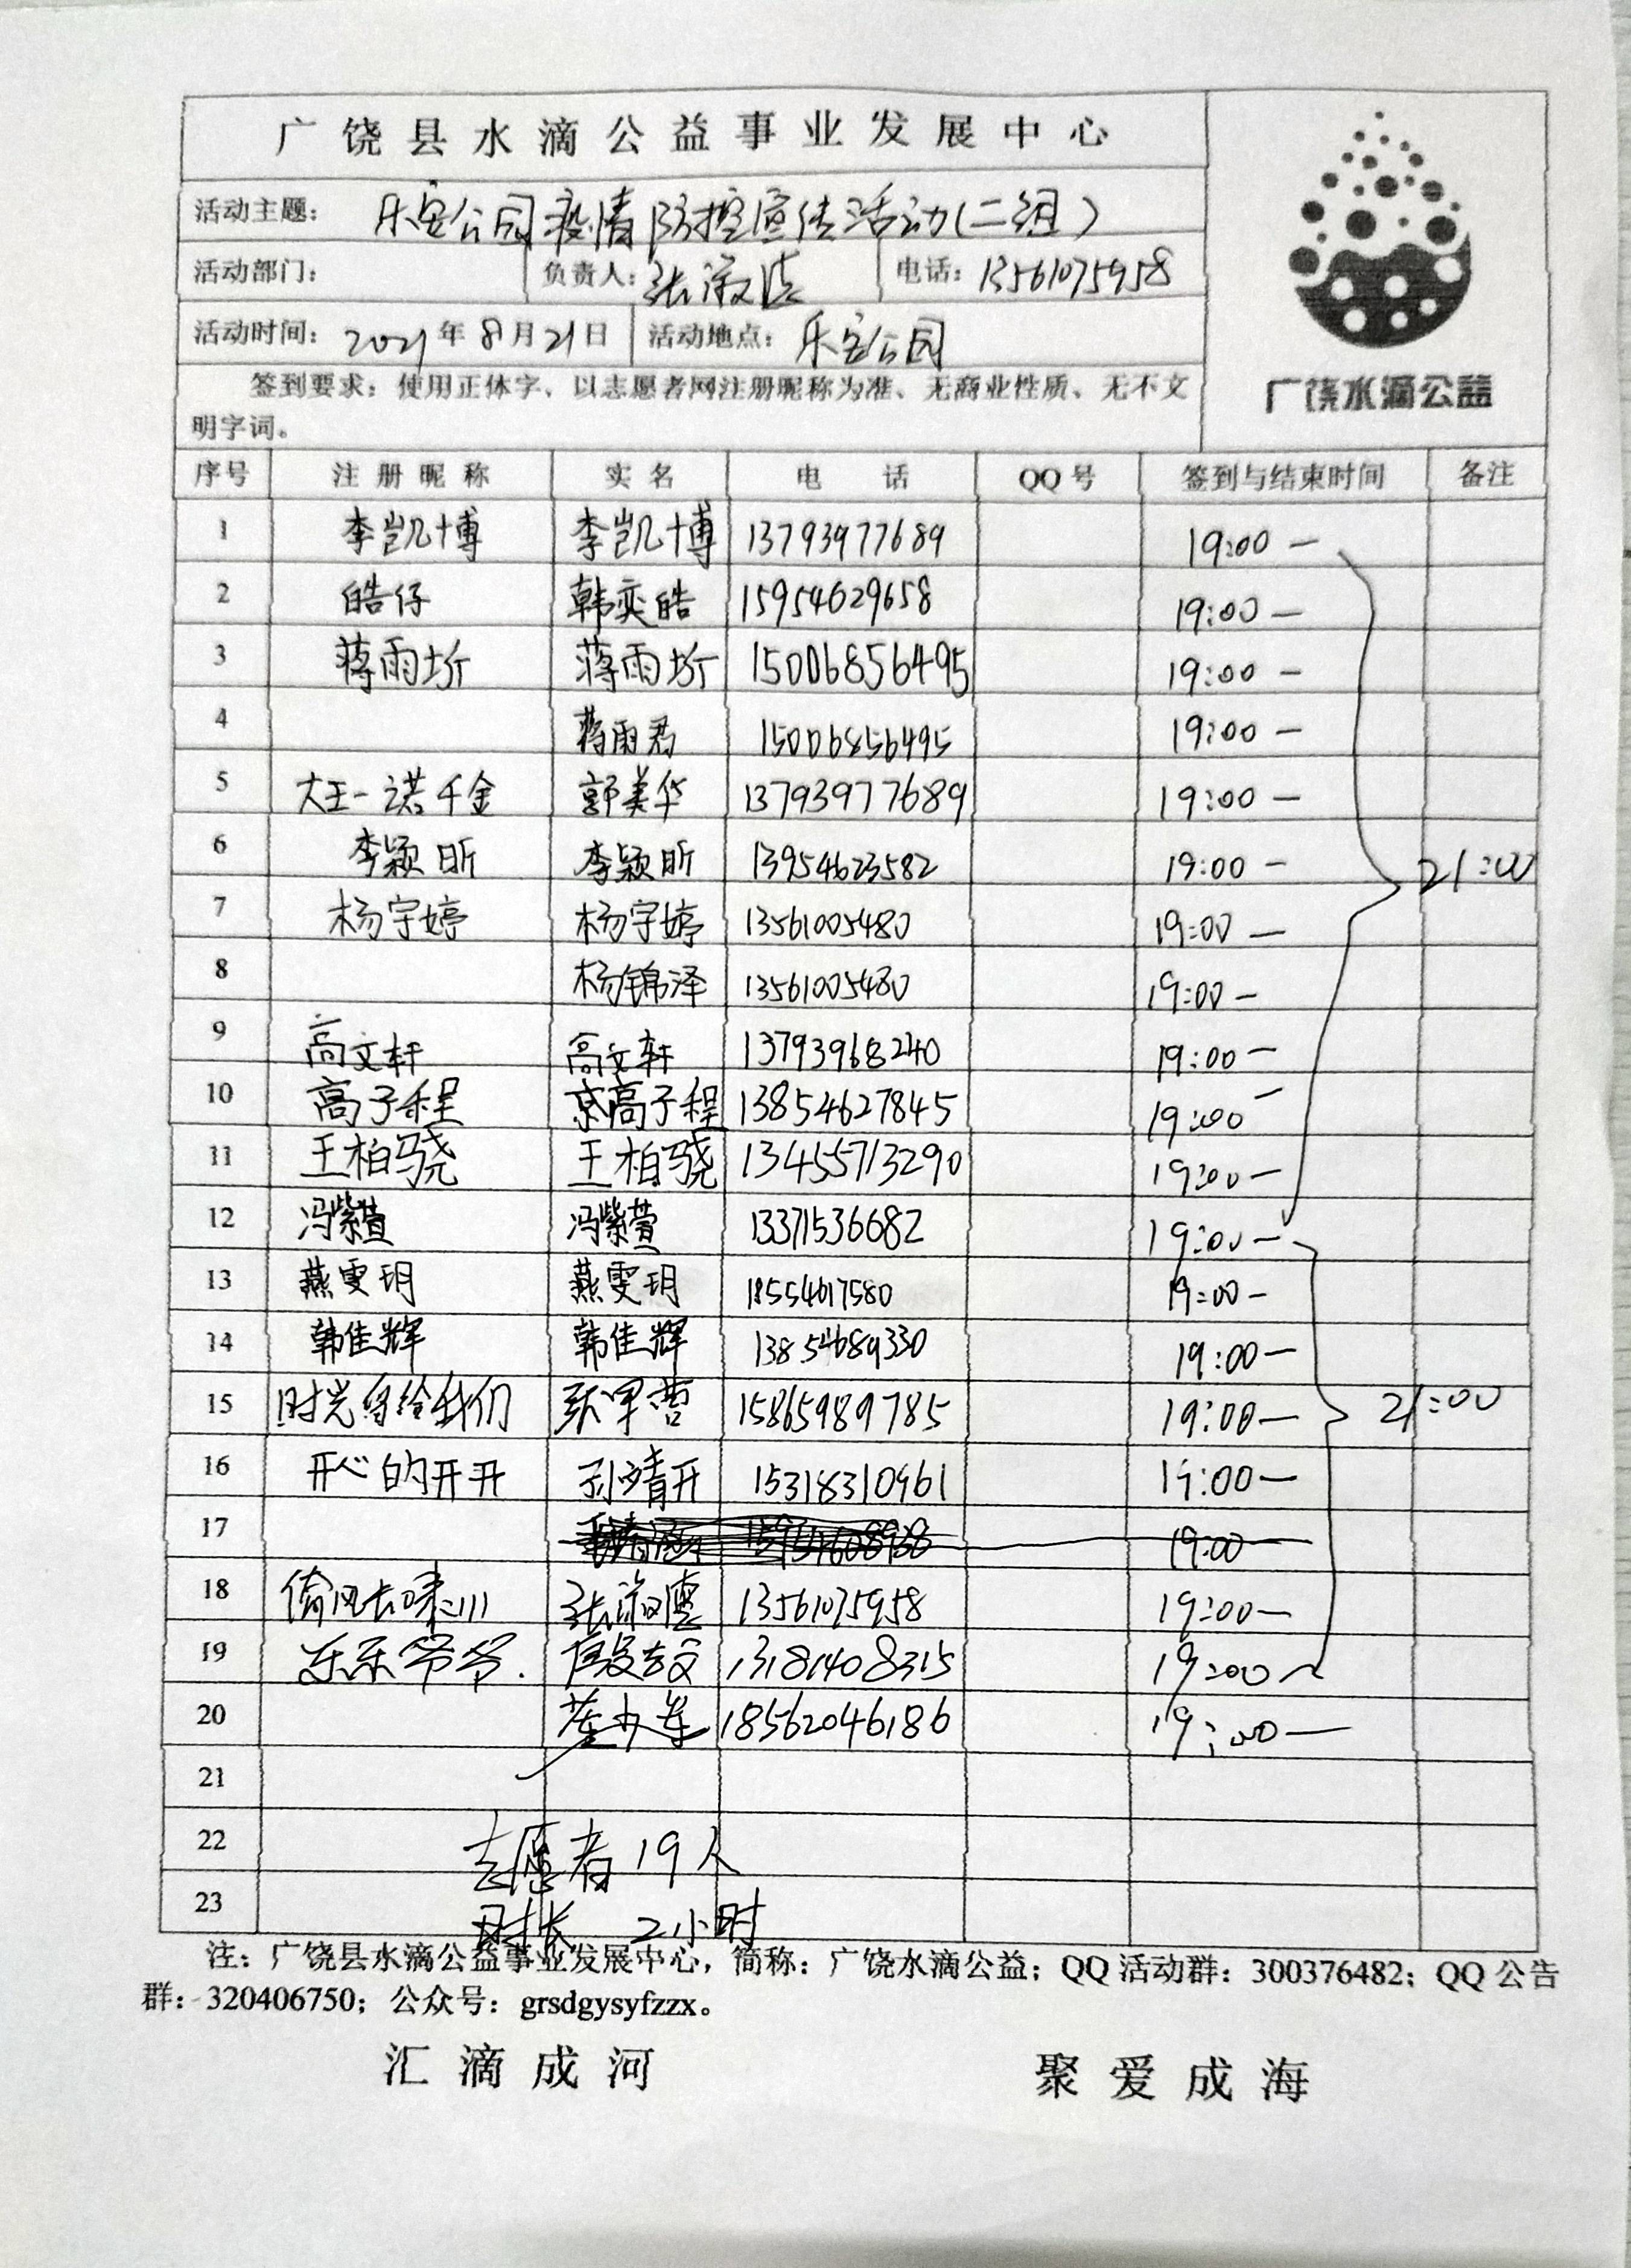 广饶县水滴公益事业发展中心
活动主题： 乐安公园疫情防控宣传活动（二组）
活动部门： 负责人：张淑德 电话：13561075958
活动时间：2021年8月21日 活动地点：乐安公园
签到要求：使用正体字、以志愿者网注册昵称为准、无商业性质、无不文
明字词。
广饶水滴公益
序号 注册昵称 实名 电话 QQ号 签到与结束时间 备注
1 李凯博 李凯博 13793977689 19:00 —
2 皓仔 韩奕皓 15954629658 19:00 —
3 蒋雨圻 蒋雨圻 15006856495 19:00 —
4 蒋雨君 15006856495 19:00 —
5 大王一诺千金 郭美华 13793977689 19:00 —
6 李颖昕 李颖昕 13954623582 19:00 — 21:00
7 杨宇婷 杨宇婷 13561005480 19:00 —
8 杨锦泽 13561005480 19:00 —
9 高文轩 高文轩 13793968240 19:00 —
10 高子程 高子程 13854627845 19:00 —
11 王柏骁 王柏骁 13455713290 19:00 —
12 冯紫萱 冯紫萱 13371536682 19:00 —
13 燕雯玥 燕雯玥 18554617580 19:00 —
14 韩佳辉 韩佳辉 13854689330 19:00 —
15 时光身给我们 15865989785 19:00 — 21:00
16 开心的开开 孙靖开 15318310961 19:00 —
17 19:00
18 张淑德 13561075958 19:00 —
19 乐乐爷爷. 13181408315 19:00
20 18562046186 19:00 —
21
22 志愿者19人
23 时长 2小时
注：广饶县水滴公益事业发展中心，简称：广饶水滴公益；QQ活动群：300376482；QQ公告
群：320406750；公众号：grsdgysyfzzx。
汇滴成河 聚爱成海